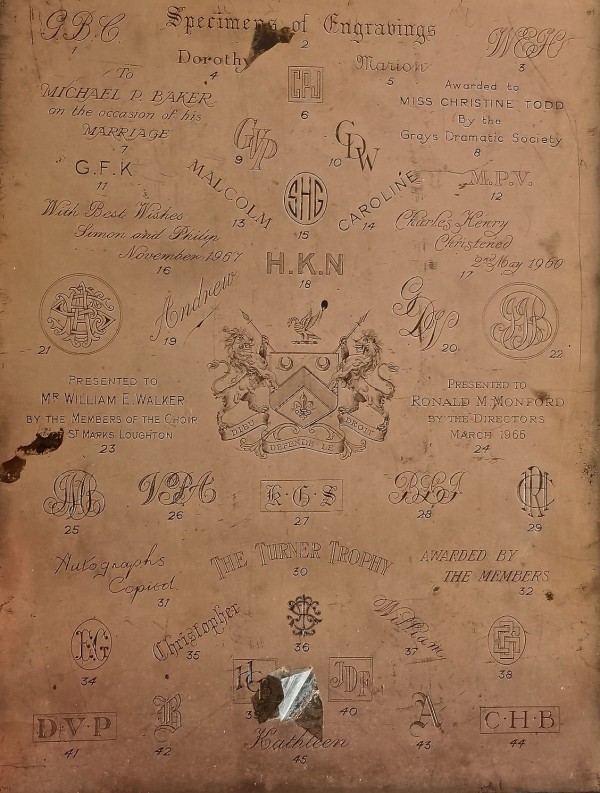 G.B.C.
1
Specimens of Engravings
2
W.E.H.
3
Dorothy
4
Marion
5
CPJ
6
To
MICHAEL P. BAKER
on the occasion of his
MARRIAGE
7
Awarded to
MISS CHRISTINE TODD
By the
Grays Dramatic Society
8
GVP
9
GDW
10
G.F.K
11
M.P.V.
12
MALCOLM
13
CAROLINE
14
SHG
15
With Best Wishes
Simon and Philip
November 1967
16
Charles Henry
Christened
2nd May 1960
17
H.K.N
18
Andrew
19
GDW
20
21
22
DIEU DEFENDE LE DROIT
PRESENTED TO
MR WILLIAM E. WALKER
BY THE MEMBERS OF THE CHOIR
ST MARKS LOUGHTON
23
PRESENTED TO
RONALD M. MONFORD
BY THE DIRECTORS
MARCH 1966
24
25
26
K·G·S
27
28
29
THE TURNER TROPHY
30
Autographs
Copied
31
AWARDED BY
THE MEMBERS
32
34
Christopher
35
36
William
37
38
JDF
40
D·V·P
41
B
42
A
43
C·H·B
44
Kathleen
45